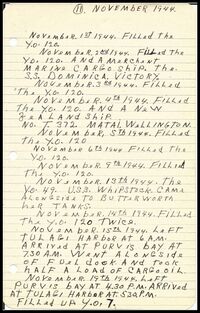 (11). NOVEMBER 1944.
NOVEMBER. 1st 1944. FILLED THE
Y.O. 120.
NOVEMBER. 2nd 1944. FILLED THE
Y.O. 120. AND A MERCHANT
MARINE CARGO SHIP. THE
S.S. DOMINICA. VICTORY.
NOVEMBER. 3rd 1944. FILLED
THE Y.O. 120.
NOVEMBER. 4th 1944. FILLED
THE Y.O. 120. AND A NEW
ZEALAND SHIP.
NO. T. 372. MATAI. WALLINGTON.
NOVEMBER, 5th 1944. FILLED
THE Y.O. 120.
NOVEMBER 6th 1944 FILLED THE
Y.O. 120.
NOVEMBER. 9th 1944. FILLED
THE Y.O. 120.
NOVEMBER. 13th 1944. THE
Y.O. 49. U.S.S. WHIPSTOCK CAME
ALONGSIDE TO BUTTERWORTH
HER TANKS.
NOVEMBER. 14th 1944. FILLED
THE Y.O. 120 TWICE.
NOVEMBER. 15th 1944. LEFT
TULAGI HARBOR AT 6 A.M.
ARRIVED AT PURVIS BAY AT
7:30 A.M. WENT ALONGSIDE
OF FUEL DOCK AND TOOK
HALF A LOAD OF CARGO OIL.
NOVEMBER. 15th 1944. LEFT
PURVIS BAY AT 4:30 P.M. ARRIVED
AT TULAGI HARBOR AT 5:30 P.M.
FILLED UP Y.O. 7.